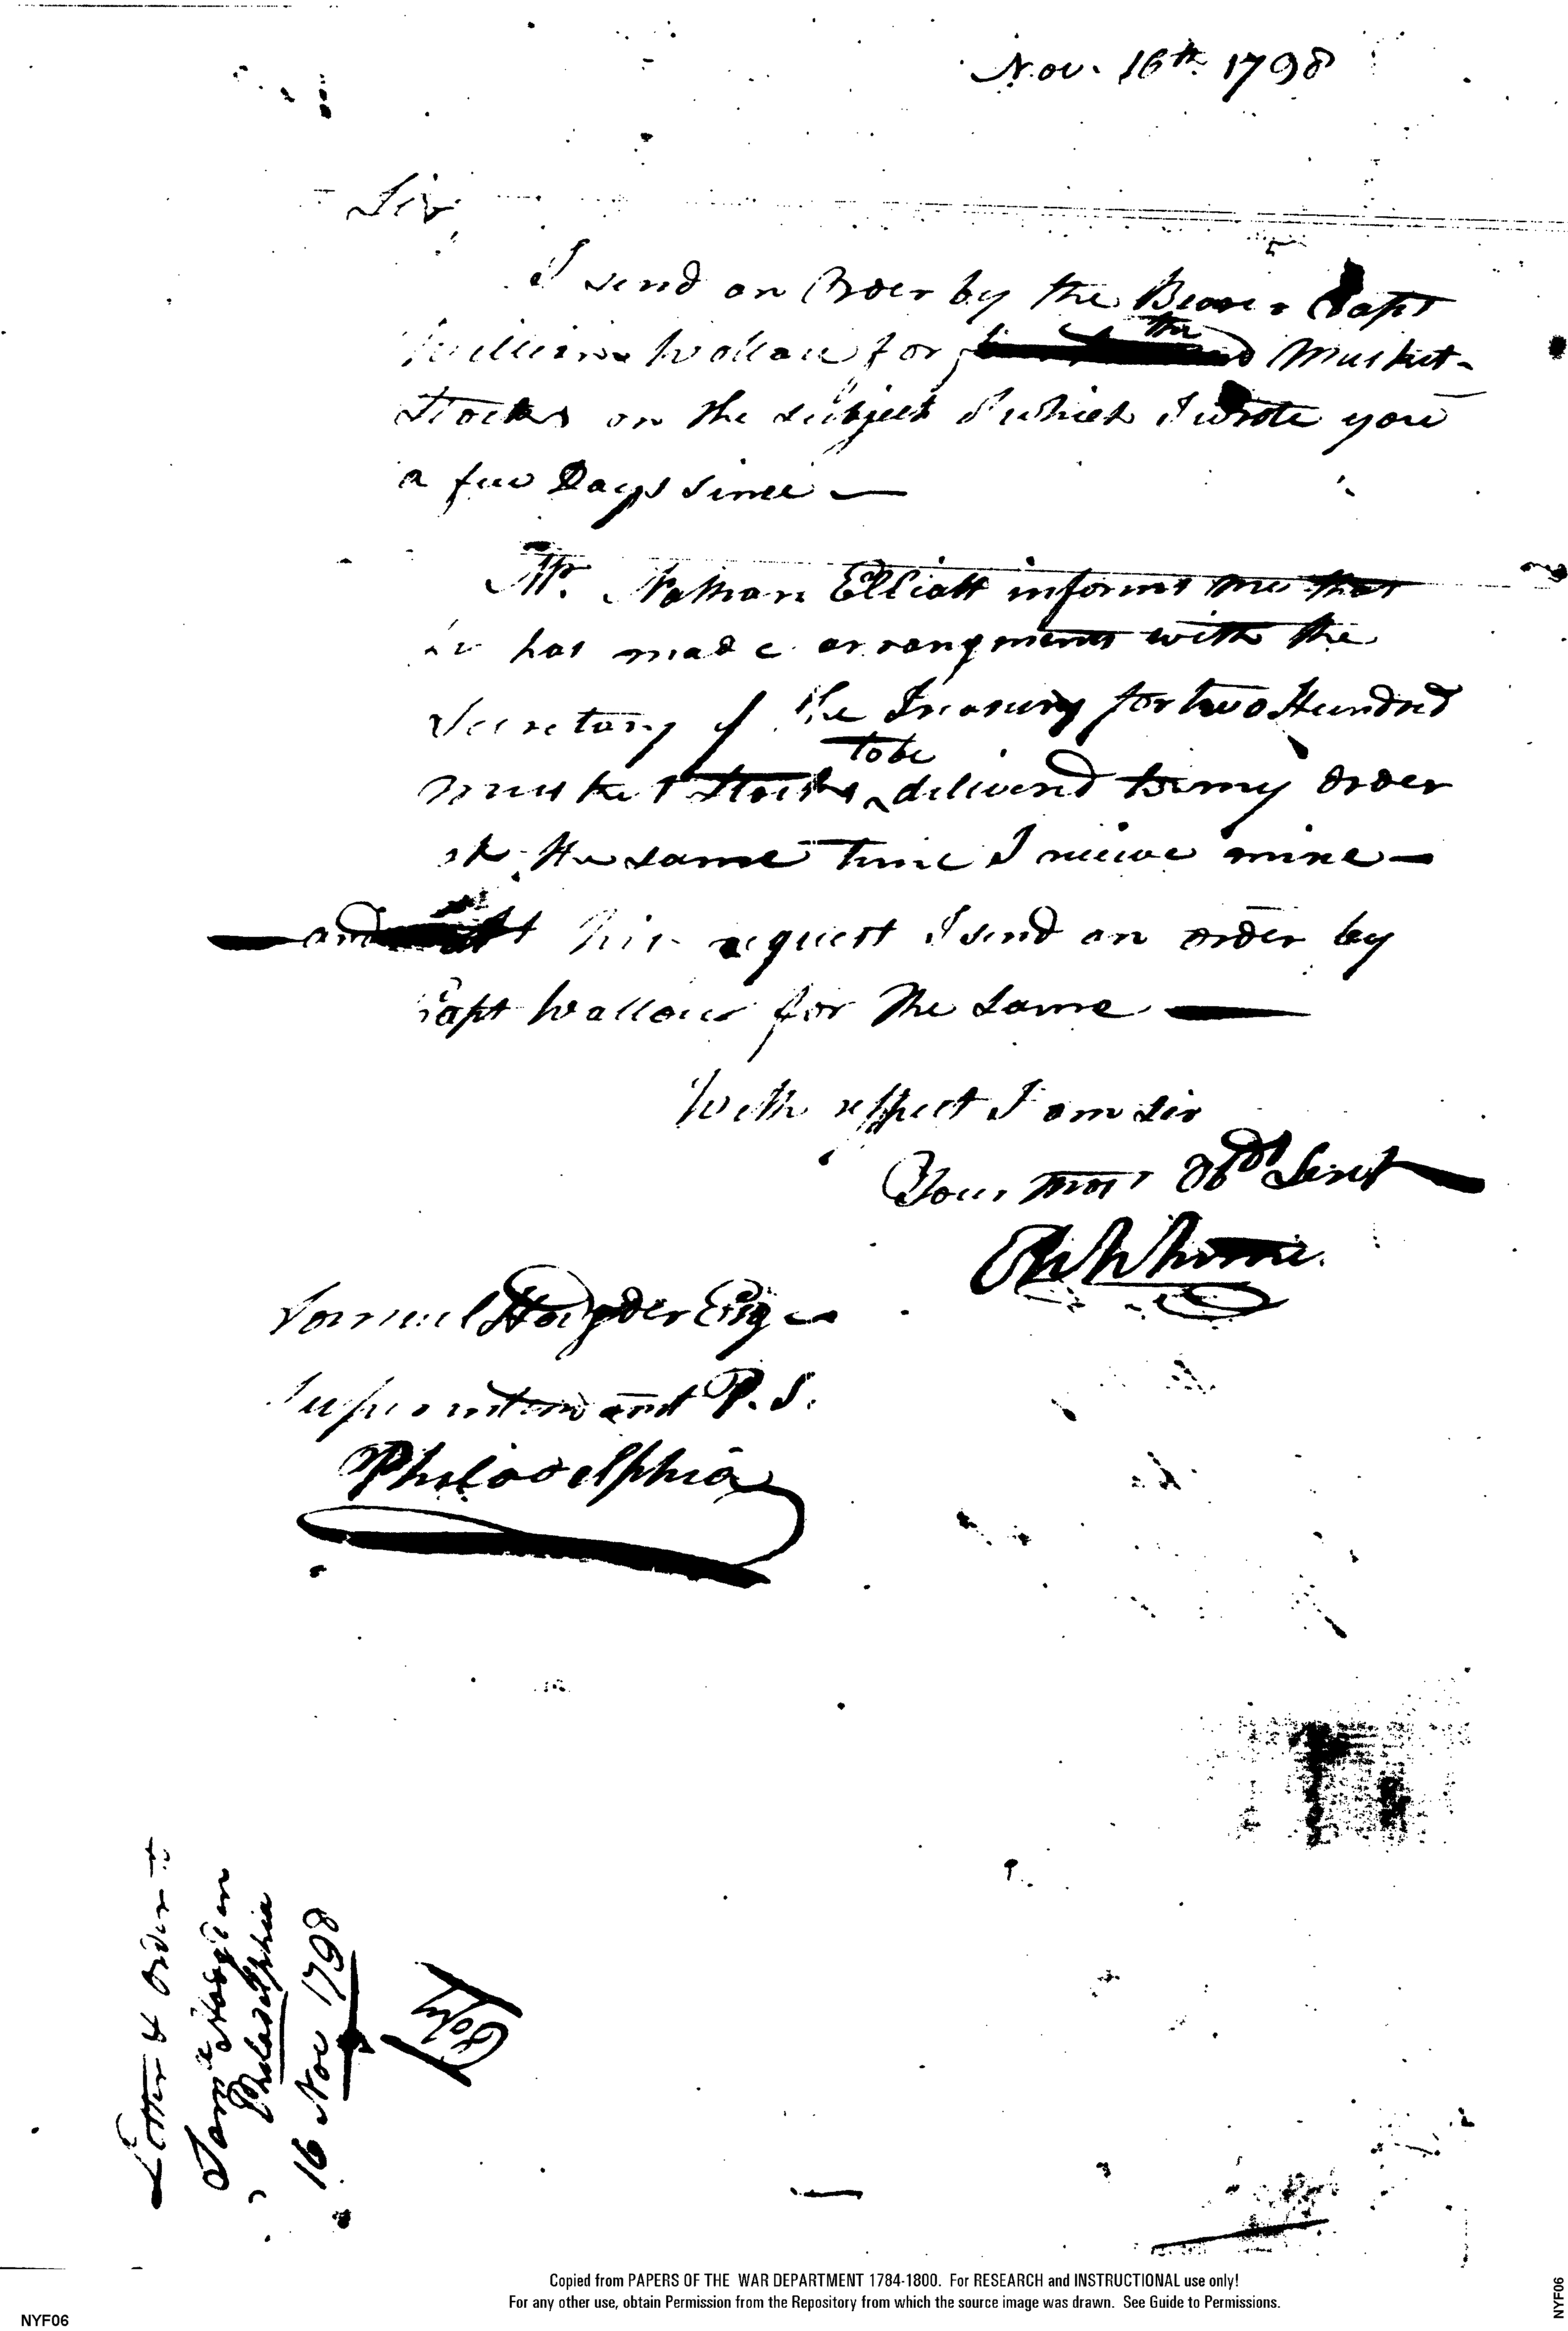 Nov. 16th 1798
Sir
I send an Order by the Bearer Capt
William Wallace for the Musket-
Stocks on the subject of which I wrote you
a few Days since —
Mr. Nathan Elliott informs me that
he has made arrangments with the
Secretary of the Treasury for two Hundred
to be
musket Stocks delivered to my order
at the same time I recieve mine —
— and at his request I send an order by
Capt Wallace for the same —
With respect I am sir
Your most Obdt Servt
Eli Whitney
Samuel Hodgden Esq
Superintendant P. S.
Philadelphia
Letter & Order to
Saml Hodgden
Philadelphia
16 Nov 1798
Copy
Copied from PAPERS OF THE WAR DEPARTMENT 1784-1800. For RESEARCH and INSTRUCTIONAL use only!
For any other use, obtain Permission from the Repository from which the source image was drawn. See Guide to Permissions.
NYF06
NYF06